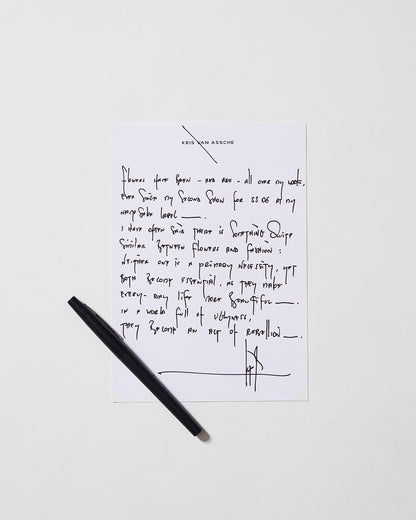 KRIS VAN ASSCHE
Flowers have been - and are - all over my work,
ever since my second show for SS 06 at my
namesake label —.
I have often said there is something quite
similar between flowers and fashion:
neither one is a primary necessity, yet
both become essential, as they make
every-day life more beautiful —.
In a world full of ugliness,
they become an act of rebellion —.